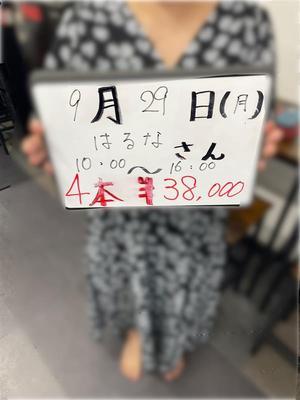 9月29日(月)
はるな さん
10:00〜16:00
4本 ¥38,000